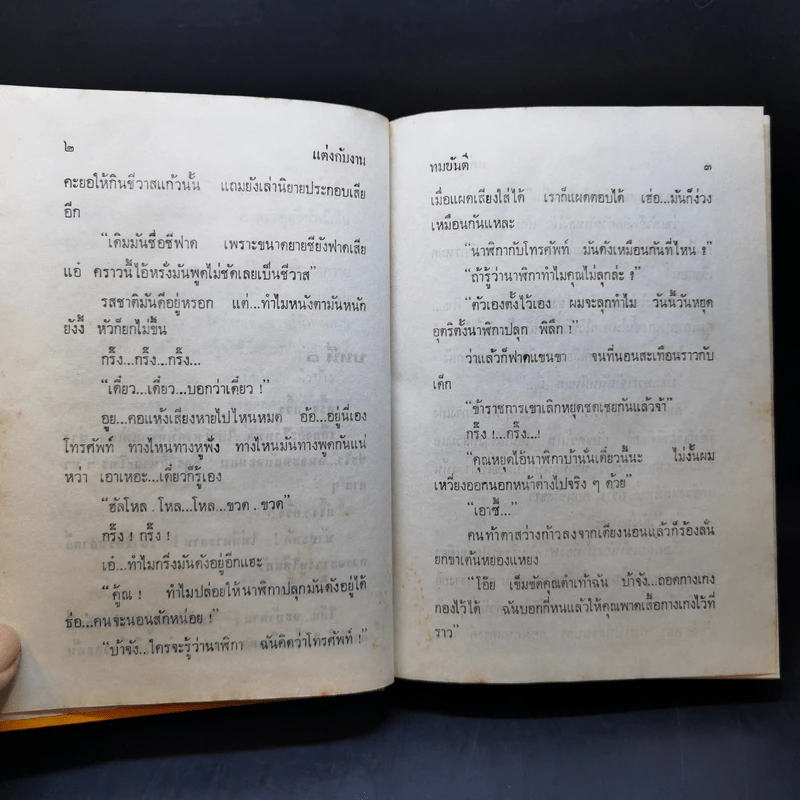 ๒ แต่งกับงาน
คะยอให้กินชีวาสแก้วนั้น แถมยังเล่านิยายประกอบเสีย
อีก
“เดิมมันชื่อชีฟาด เพราะขนาดยายชียังฟาดเสีย
แอ้ คราวนี้ไอ้หรั่งมันพูดไม่ชัดเลยเป็นชีวาส”
รสชาติมันดีอยู่หรอก แต่...ทำไมหนังตามันหนัก
ยังงี้ หัวก็ยกไม่ขึ้น
กริ๊ง...กริ๊ง...กริ๊ง...
“เดี๋ยว...เดี๋ยว...บอกว่าเดี๋ยว !”
อูย...คอแห้งเสียงหายไปไหนหมด อ้อ...อยู่นี่เอง
โทรศัพท์ ทางไหนทางหูฟัง ทางไหนมันทางพูดกันแน่
หว่า เอาเหอะ...เดี๋ยวก็รู้เอง
“ฮัลโหล . โหล...โหล...ขวด . ขวด”
กริ๊ง ! กริ๊ง !
เอ๋...ทำไมกริ่งมันดังอยู่อีกแฮะ
“คู้ณ ! ทำไมปล่อยให้นาฬิกาปลุกมันดังอยู่ได้
ธ่อ...คนจะนอนสักหน่อย !”
“บ้าจัง...ใครจะรู้ว่านาฬิกา ฉันคิดว่าโทรศัพท์ !”
ทมยันตี ๓
เมื่อแผดเสียงใส่ได้ เราก็แผดตอบได้ เฮ่อ...มันก็ง่วง
เหมือนกันแหละ
“นาฬิกากับโทรศัพท์ มันดังเหมือนกันที่ไหน ?”
“ถ้ารู้ว่านาฬิกาทำไมคุณไม่ลุกล่ะ !”
“ตัวเองตั้งไว้เอง ผมจะลุกทำไม วันนี้วันหยุด
อุตริตั้งนาฬิกาปลุก พิลึก !”
ว่าแล้วก็ฟาดแขนขา จนที่นอนสะเทือนราวกับ
เด็ก
“ข้าราชการเขาเลิกหยุดชดเชยกันแล้วจ้า”
กริ๊ง !...กริ๊ง...!
“คุณหยุดไอ้นาฬิกาบ้านั่นเดี๋ยวนี้นะ ไม่งั้นผม
เหวี่ยงออกนอกหน้าต่างไปจริง ๆ ด้วย”
“เอาซี้...”
คนท้าตาสว่างก้าวลงจากเตียงนอนแล้วก็ร้องลั่น
ยกขาเต้นหยองแหยง
“โอ๊ย เข็มขัดคุณตำเท้าฉัน บ้าจัง...ถอดกางเกง
กองไว้ได้ ฉันบอกกี่หนแล้วให้คุณพาดเสื้อกางเกงไว้ที่
ราว”